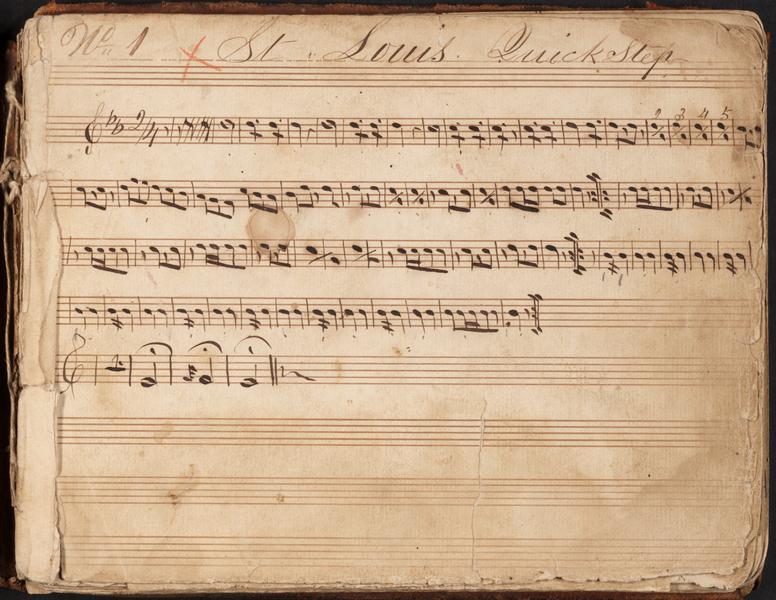 No 1 St. Louis. Quick Step
2/4
2 3 4 5